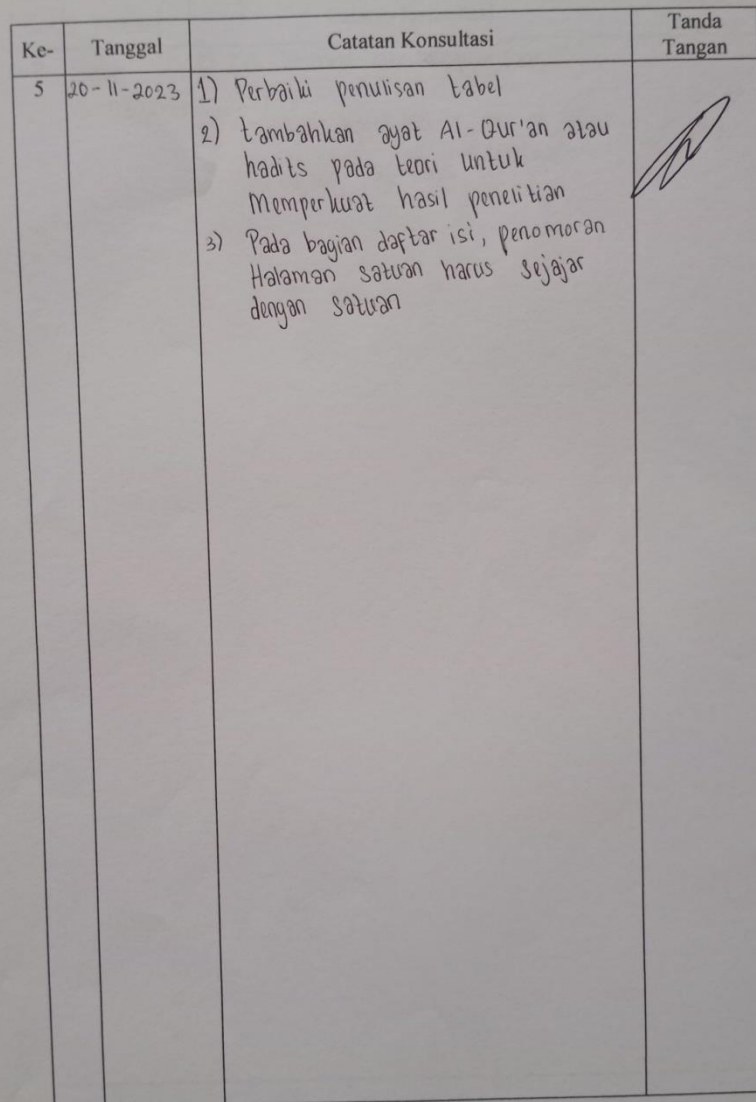 Ke- Tanggal Catatan Konsultasi Tanda Tangan
5 20-11-2023 1) Perbaiki penulisan tabel
2) tambahkan ayat Al-Qur'an atau
hadits pada teori untuk
Memperkuat hasil penelitian
3) Pada bagian daftar isi, penomoran
Halaman satuan harus sejajar
dengan satuan